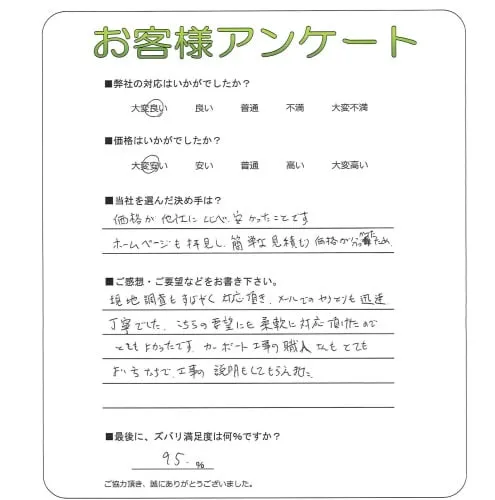 お客様アンケート
■弊社の対応はいかがでしたか？
大変良い 良い 普通 不満 大変不満
■価格はいかがでしたか？
大変安い 安い 普通 高い 大変高い
■当社を選んだ決め手は？
価格が他社に比べ、安かったことです
ホームページも拝見し、簡単な見積り価格が分かったため。
■ご感想・ご要望などをお書き下さい。
現地調査もすばやく対応頂き、メールでのやりとりも迅速
丁寧でした。こちらの要望にも柔軟に対応頂けたので
とてもよかったです。カーポート工事の職人さんもとても
よい方たちで、工事の説明もしてもらえました。
■最後に、ズバリ満足度は何％ですか？
95. ％
ご協力頂き、誠にありがとうございました。